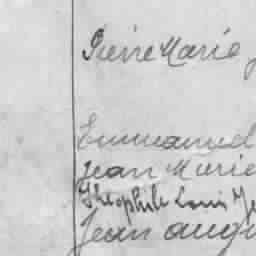 Pierre Marie
Emmanuel
Jean Marie
Théophile Louis
Jean